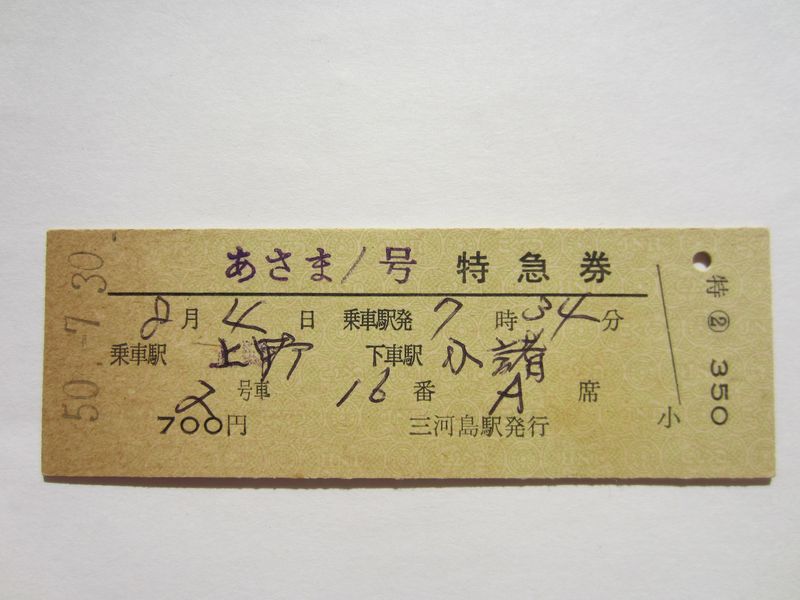 50.-7.30
あさま1号 特急券
8月4日 乗車駅発7時34分
乗車駅 上野 下車駅 小諸
2号車 16番 A席
700円 三河島駅発行
小
特②350